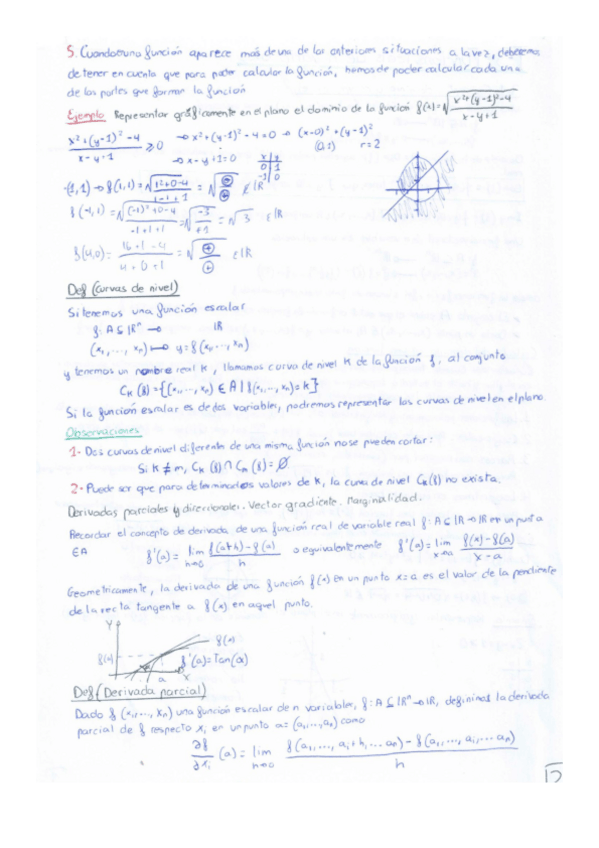 5. Cuando en una función aparece más de una de las anteriores situaciones a la vez, deberemos
de tener en cuenta que para poder calcular la función, hemos de poder calcular cada una
de las partes que forman la función
Ejemplo Representar gráficamente en el plano el dominio de la función f(x)=√(x²+(y-1)²-4 / x-y+1)
x²+(y-1)²-4 / x-y+1 ≥0 → x²+(y-1)²-4=0 → (x-0)²+(y-1)²
(0,1) r=2
→ x-y+1=0 x y 0 1 -1 0
f(-1,1)=√((-1)²+0-4 / -1+1+1)=√(-3 / +1)=√3 ∉ℝ
f(4,0)= 16+1-4 / 4+0+1 =√(⊕/⊕) ∈ℝ
Def (Curvas de nivel)
Si tenemos una función escalar
f: A⊆ℝⁿ → ℝ
(x₁,..., xₙ) ↦ y=f(x₁,..., xₙ)
y tenemos un nombre real k, llamamos curva de nivel k de la función f, al conjunto
Cₖ(f)={(x₁,..., xₙ) ∈ A | f(x₁,..., xₙ)=k}
Si la función escalar es de dos variables, podremos representar las curvas de nivel en el plano
Observaciones
1- Dos curvas de nivel diferente de una misma función no se pueden cortar:
Si k≠m, Cₖ(f)∩Cₘ(f)=∅
2- Puede ser que para determinados valores de k, la curva de nivel Cₖ(f) no exista.
Derivadas parciales y direccionales. Vector gradiente. Marginalidad.
Recordar el concepto de derivada de una función real de variable real f: A⊆ℝ→ℝ en un punto
∈A f'(a)= lim h→0 f(a+h)-f(a) / h o equivalentemente f'(a)= lim x→a f(x)-f(a) / x-a
Geometricamente, la derivada de una función f(x) en un punto x=a es el valor de la pendiente
de la recta tangente a f(x) en aquel punto.
Y
f(x)
f(a)
f'(a)=Tan(α)
a
x
Def (Derivada parcial)
Dado f(x₁,..., xₙ) una función escalar de n variables, f: A⊆ℝⁿ→ℝ, definimos la derivada
parcial de f respecto xᵢ en un punto a=(a₁,...,aₙ) como
∂f/∂xᵢ (a) = lim h→0 f(a₁,..., aᵢ+h,... aₙ)-f(a₁,..., aᵢ,... aₙ) / h